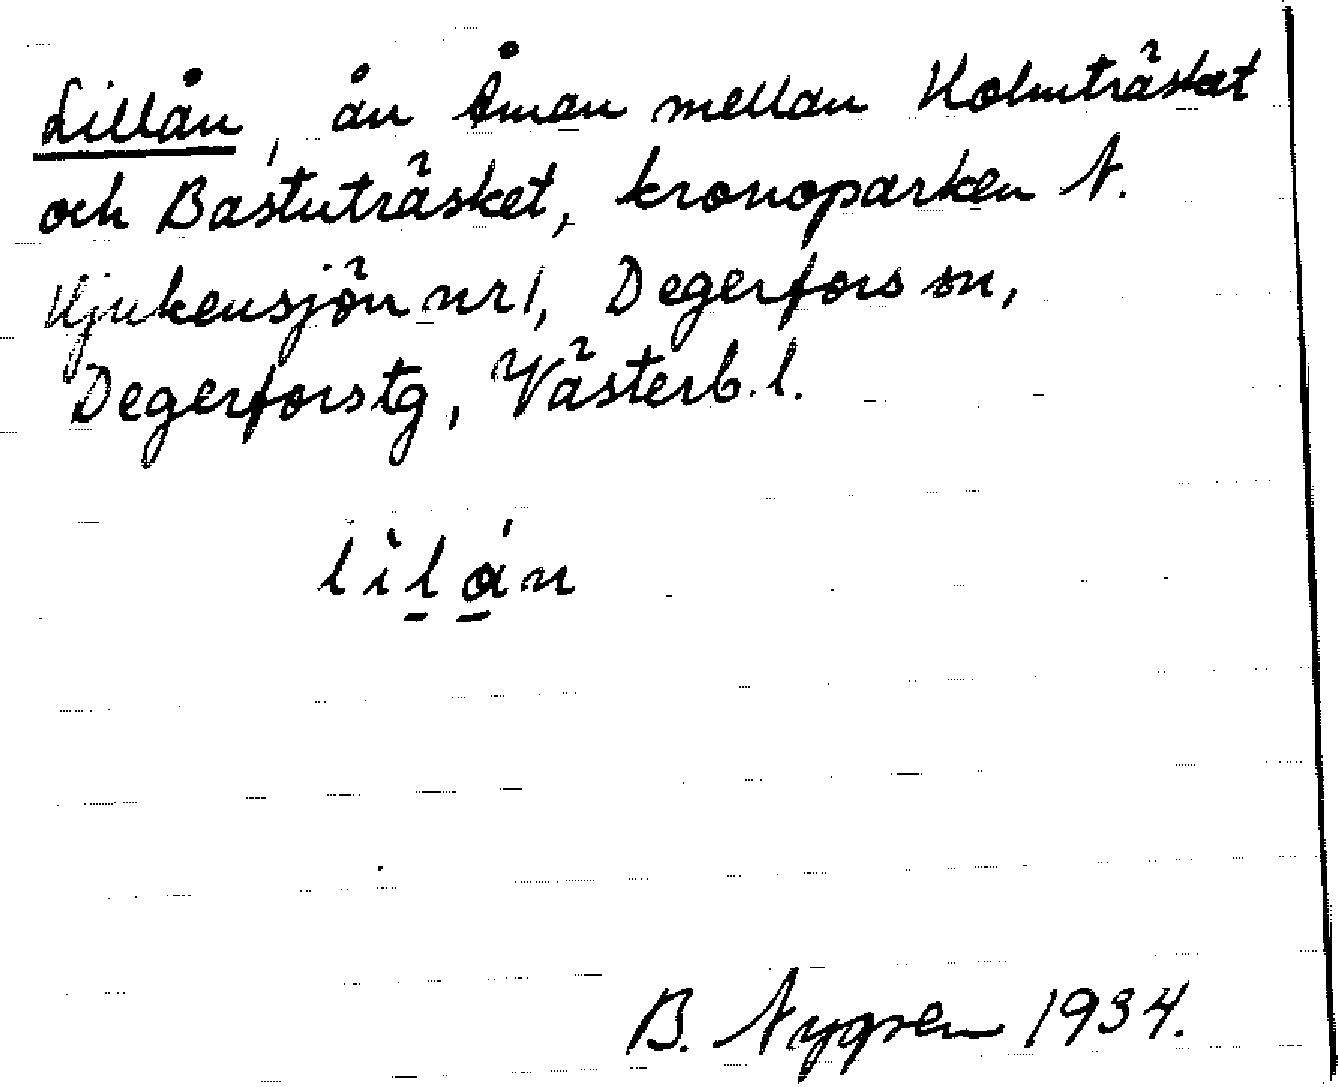 Lillån, ån Åman mellan Holmträsket
och Bastuträsket, kronoparken N.
Hjukensjön nr 1, Degerfors sn,
Degerforstg, Västerb. l.
lìlån
B. Nygren 1934.